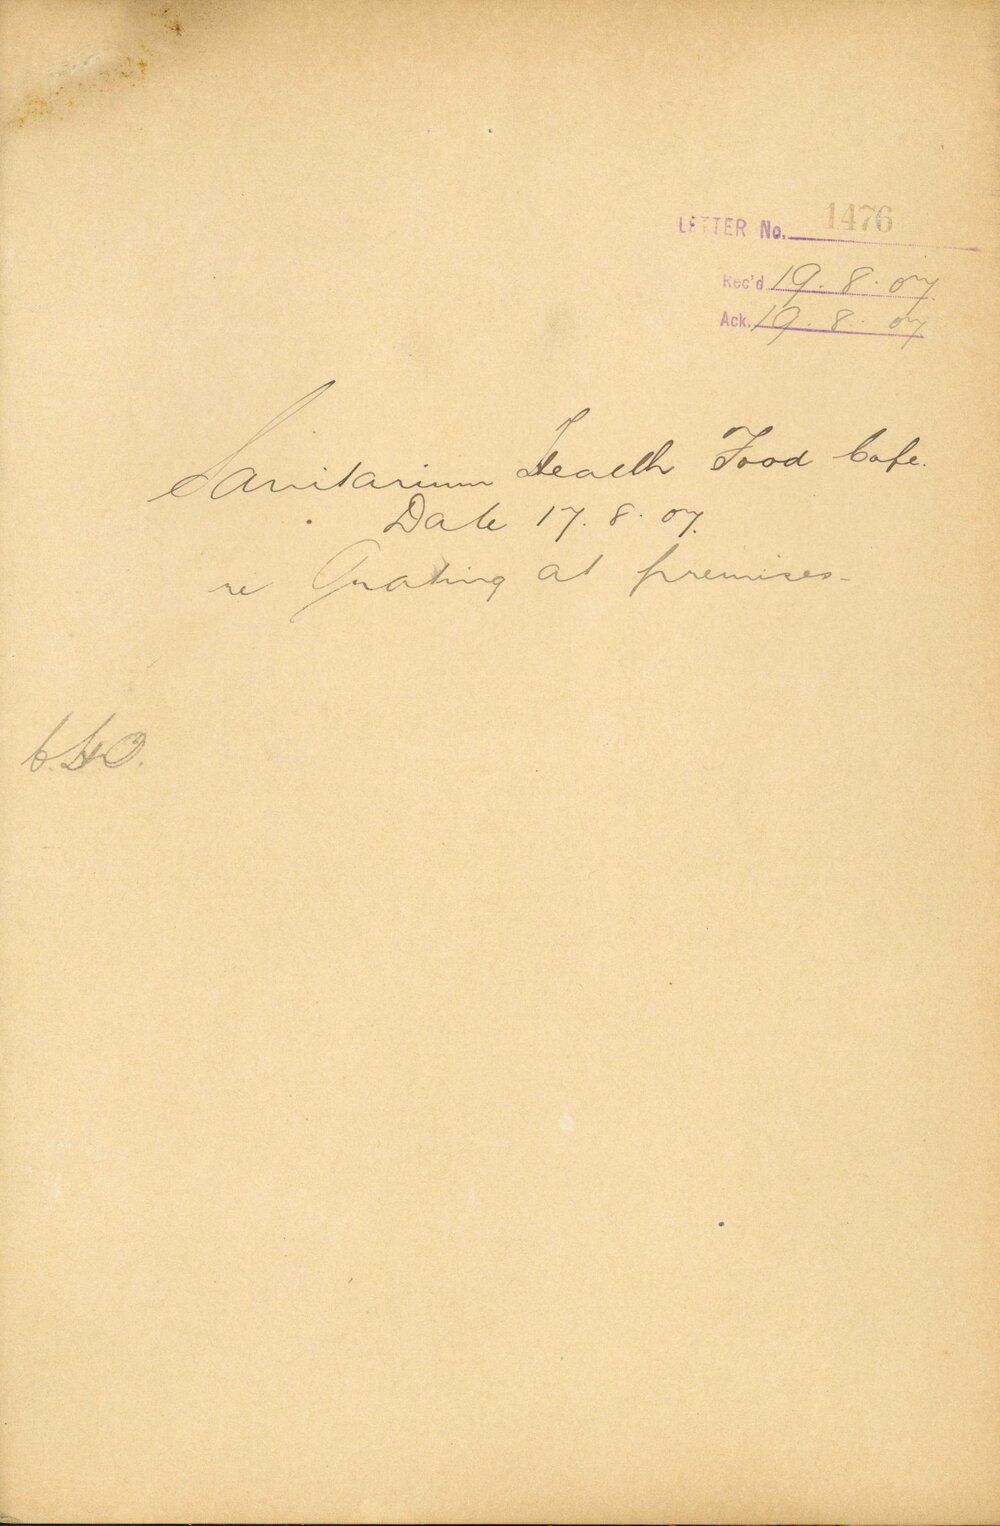 LETTER No. 1476
Rec'd 19. 8. 07
Ack. 19. 8. 07
Sanitarium Health Food Cafe.
Date 17. 8. 07.
re Grating at premises-
C.H.O.